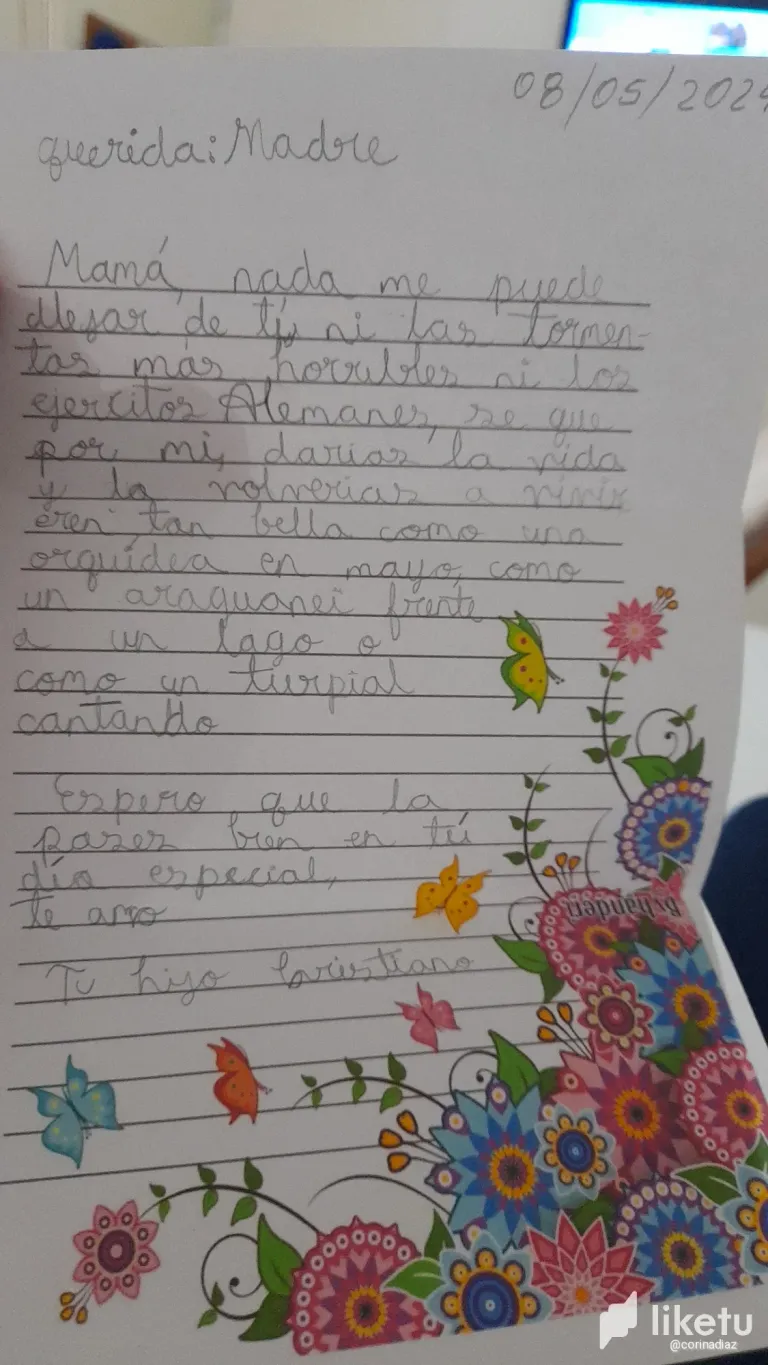 08/05/2024
querida: Madre
Mamá, nada me puede
alejar de tí, ni las tormen-
tas más horribles ni los
ejercitos Alemanes, se que
por mi, darias la vida
y la volverias a vivir
eren tan bella como una
orquídea en mayo, como
un araguanei frente
a un lago o
como un turpial
cantando
Espero que la
pases bien en tú
día especial,
te amo
Tu hijo Cristiano
liketu
@corinadiaz